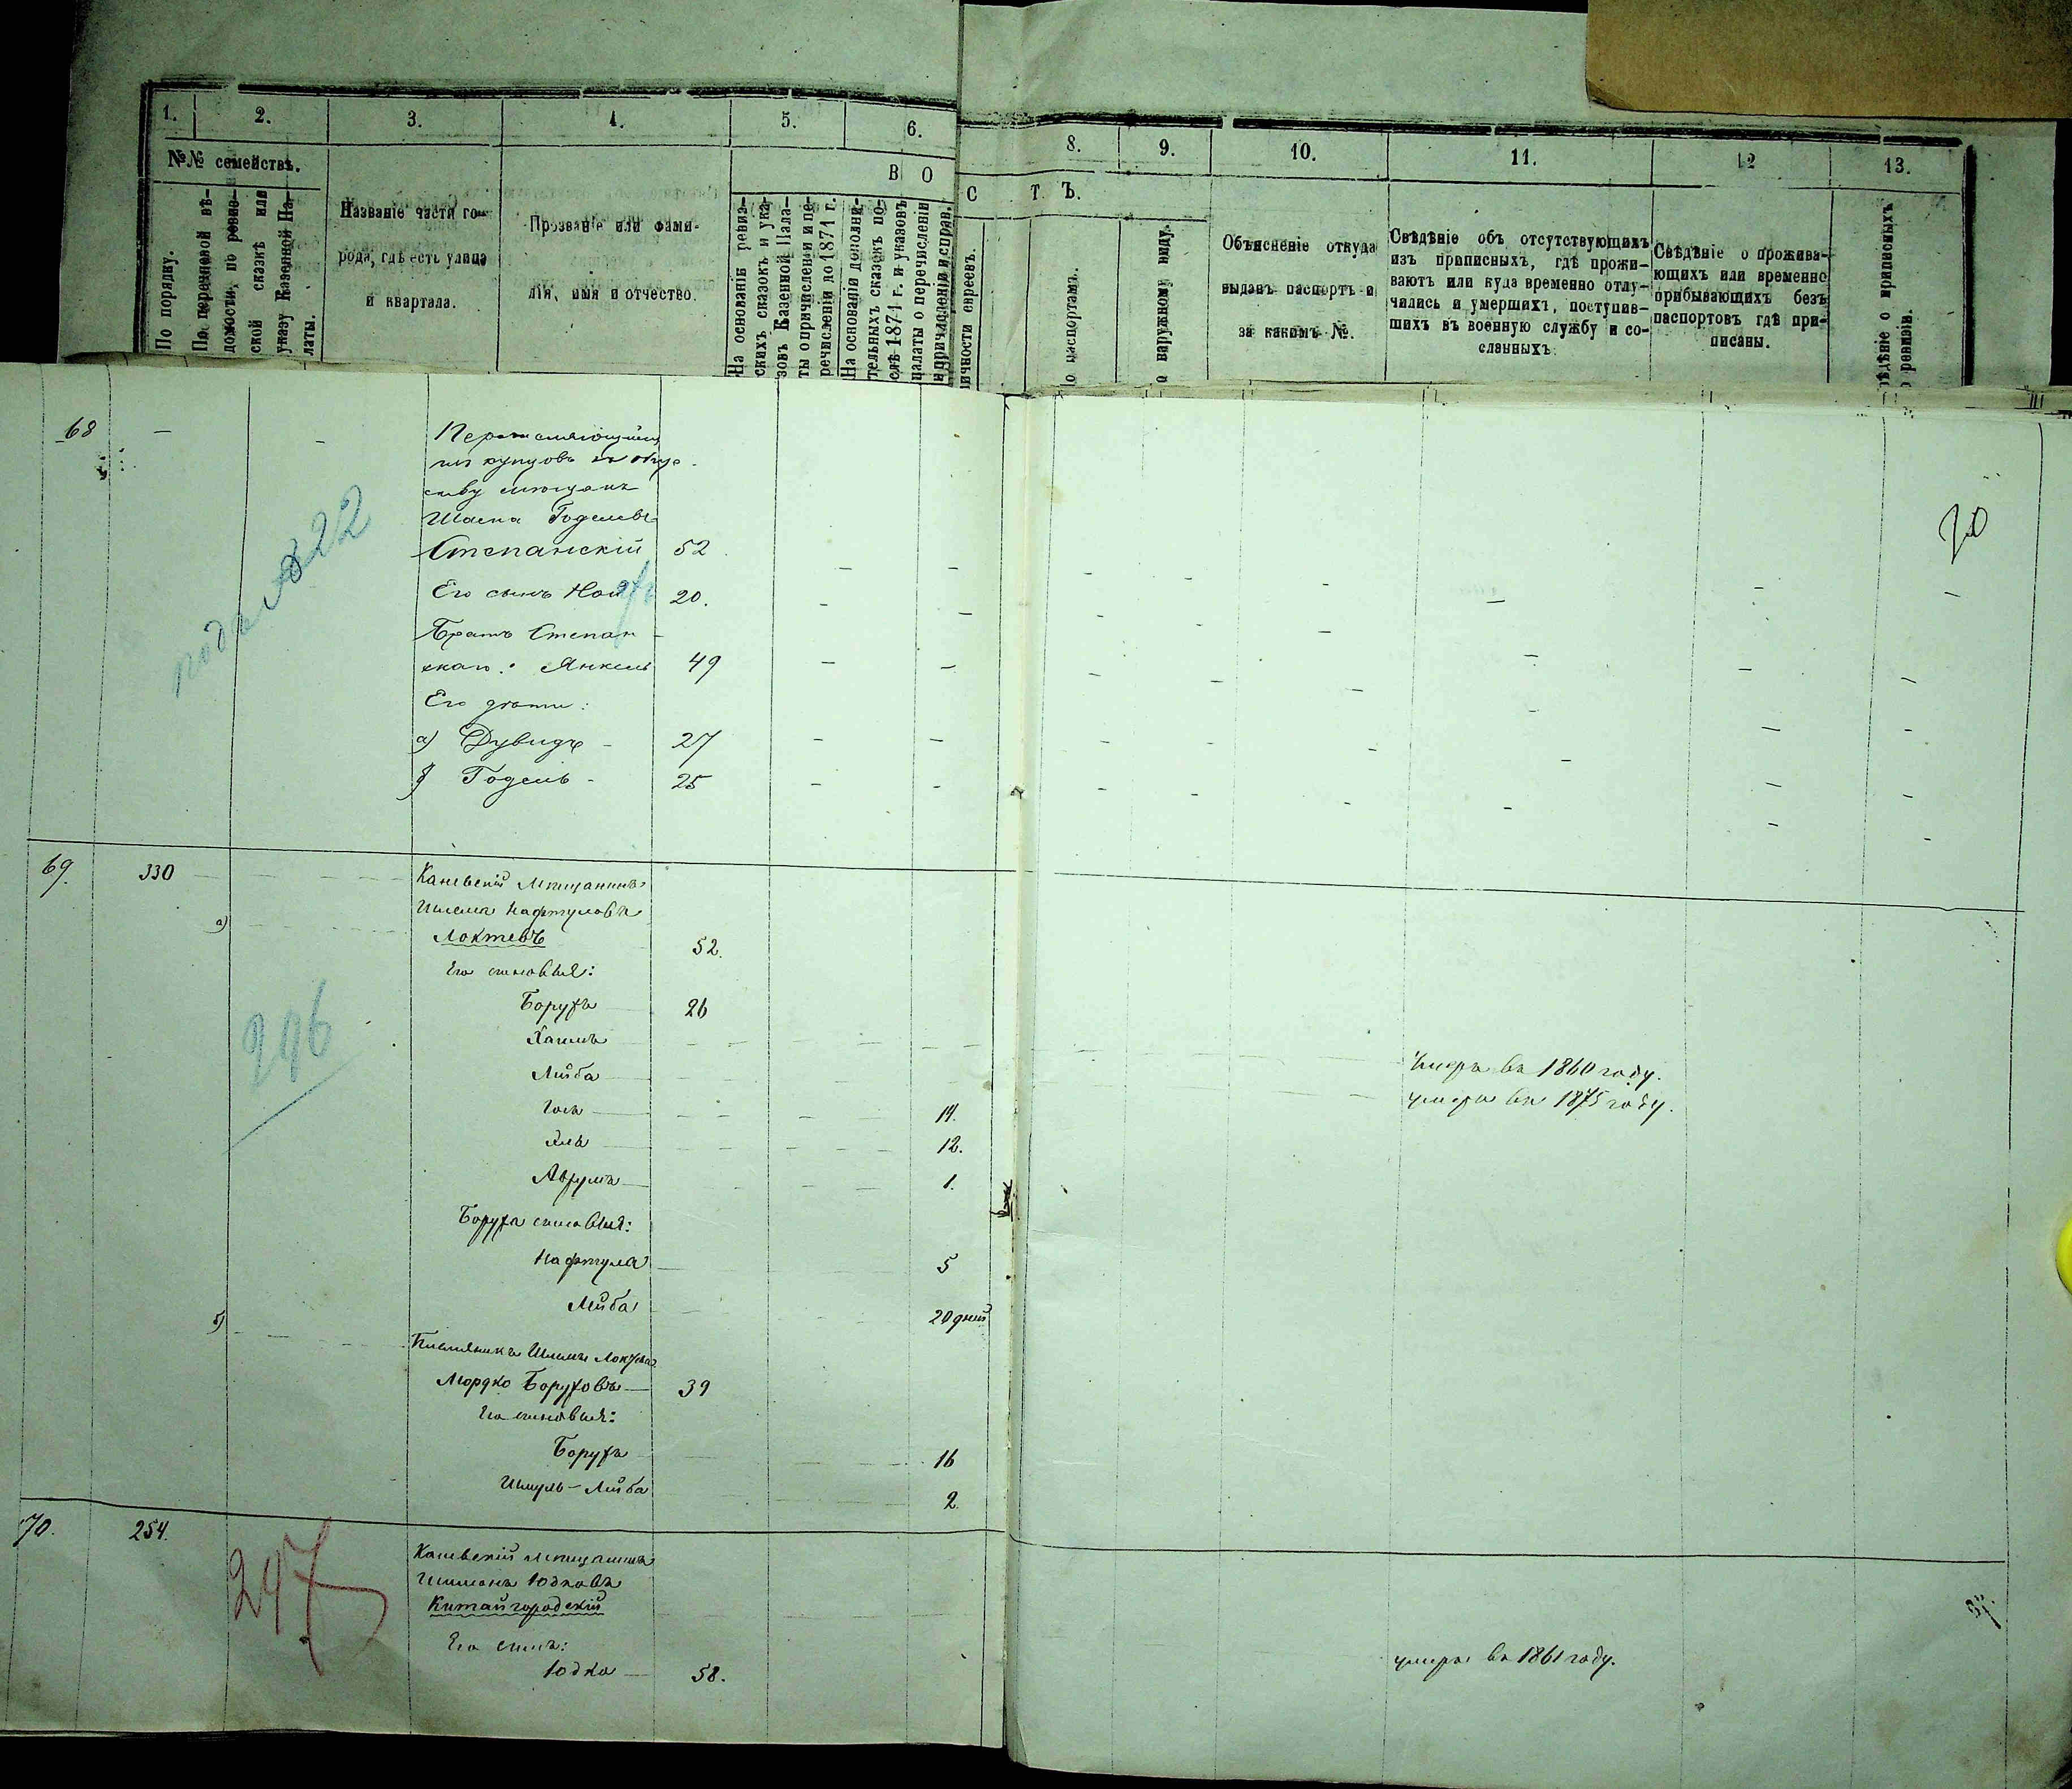 1. 2. 3. 4. 5. 6. 8. 9. 10. 11. 12 13.
№№ семействъ.
В О С Т Ъ.
По порядку.
По перечневой вѣ-
домости, по ревиз-
ской сказкѣ или
указу Казенной Па-
латы.
Названіе части го-
рода, гдѣ есть улица
и квартала.
Прозваніе или фами-
лія, имя и отчество.
На основаніи ревиз-
скихъ сказокъ и ука-
зовъ Казенной Пала-
ты о причисленіи и пе-
речисленіи до 1874 г.
На основаніи дополни-
тельныхъ сказокъ по-
слѣ 1874 г. и указовъ
палаты о перечисленіи
и причисленіи и исправ.
личности евреевъ.
по паспортамъ.
о наружному виду.
Объясненіе откуда
выданъ паспортъ и
за какимъ №.
Свѣдѣніе объ отсутствующихъ
изъ приписныхъ, гдѣ прожи-
ваютъ или куда временно отлу-
чились и умершихъ, поступив-
шихъ въ военную службу и со-
сланныхъ.
Свѣдѣніе о прожива-
ющихъ или временно
прибывающихъ безъ
паспортовъ гдѣ при-
писаны.
ѣдѣніе о приписныхъ
о ревизіи.
70
68 — —
изъ купцовъ
ству мещанъ
Годелевъ
Степанскій 52
Его сынъ 20.
Братъ Степан-
скаго: Янкель 49
Его дѣти:
а) Дувидъ - 27
б) Годель - 25
22
69. 330 Каневскій Мѣщанинъ
а) Шлема Нафтуловъ
Локтевъ 52.
Его сыновья:
Борухъ 26
Хаимъ умеръ въ 1860 году.
Лейба умеръ въ 1875 году.
14.
12.
Аврумъ 1.
Боруха сыновья:
Нафтула 5
Лейба 20 дней
296
б) Племянникъ Шлемы Локтева
Мордко Боруховъ 39
Его сыновья:
Борухъ 16
Шмуль-Лейба 2.
70. 254. Каневскій мѣщанинъ
297
Шимонъ Юдковъ
Китайгородскій умеръ въ 1861 году.
Его сынъ:
Юдко 58.